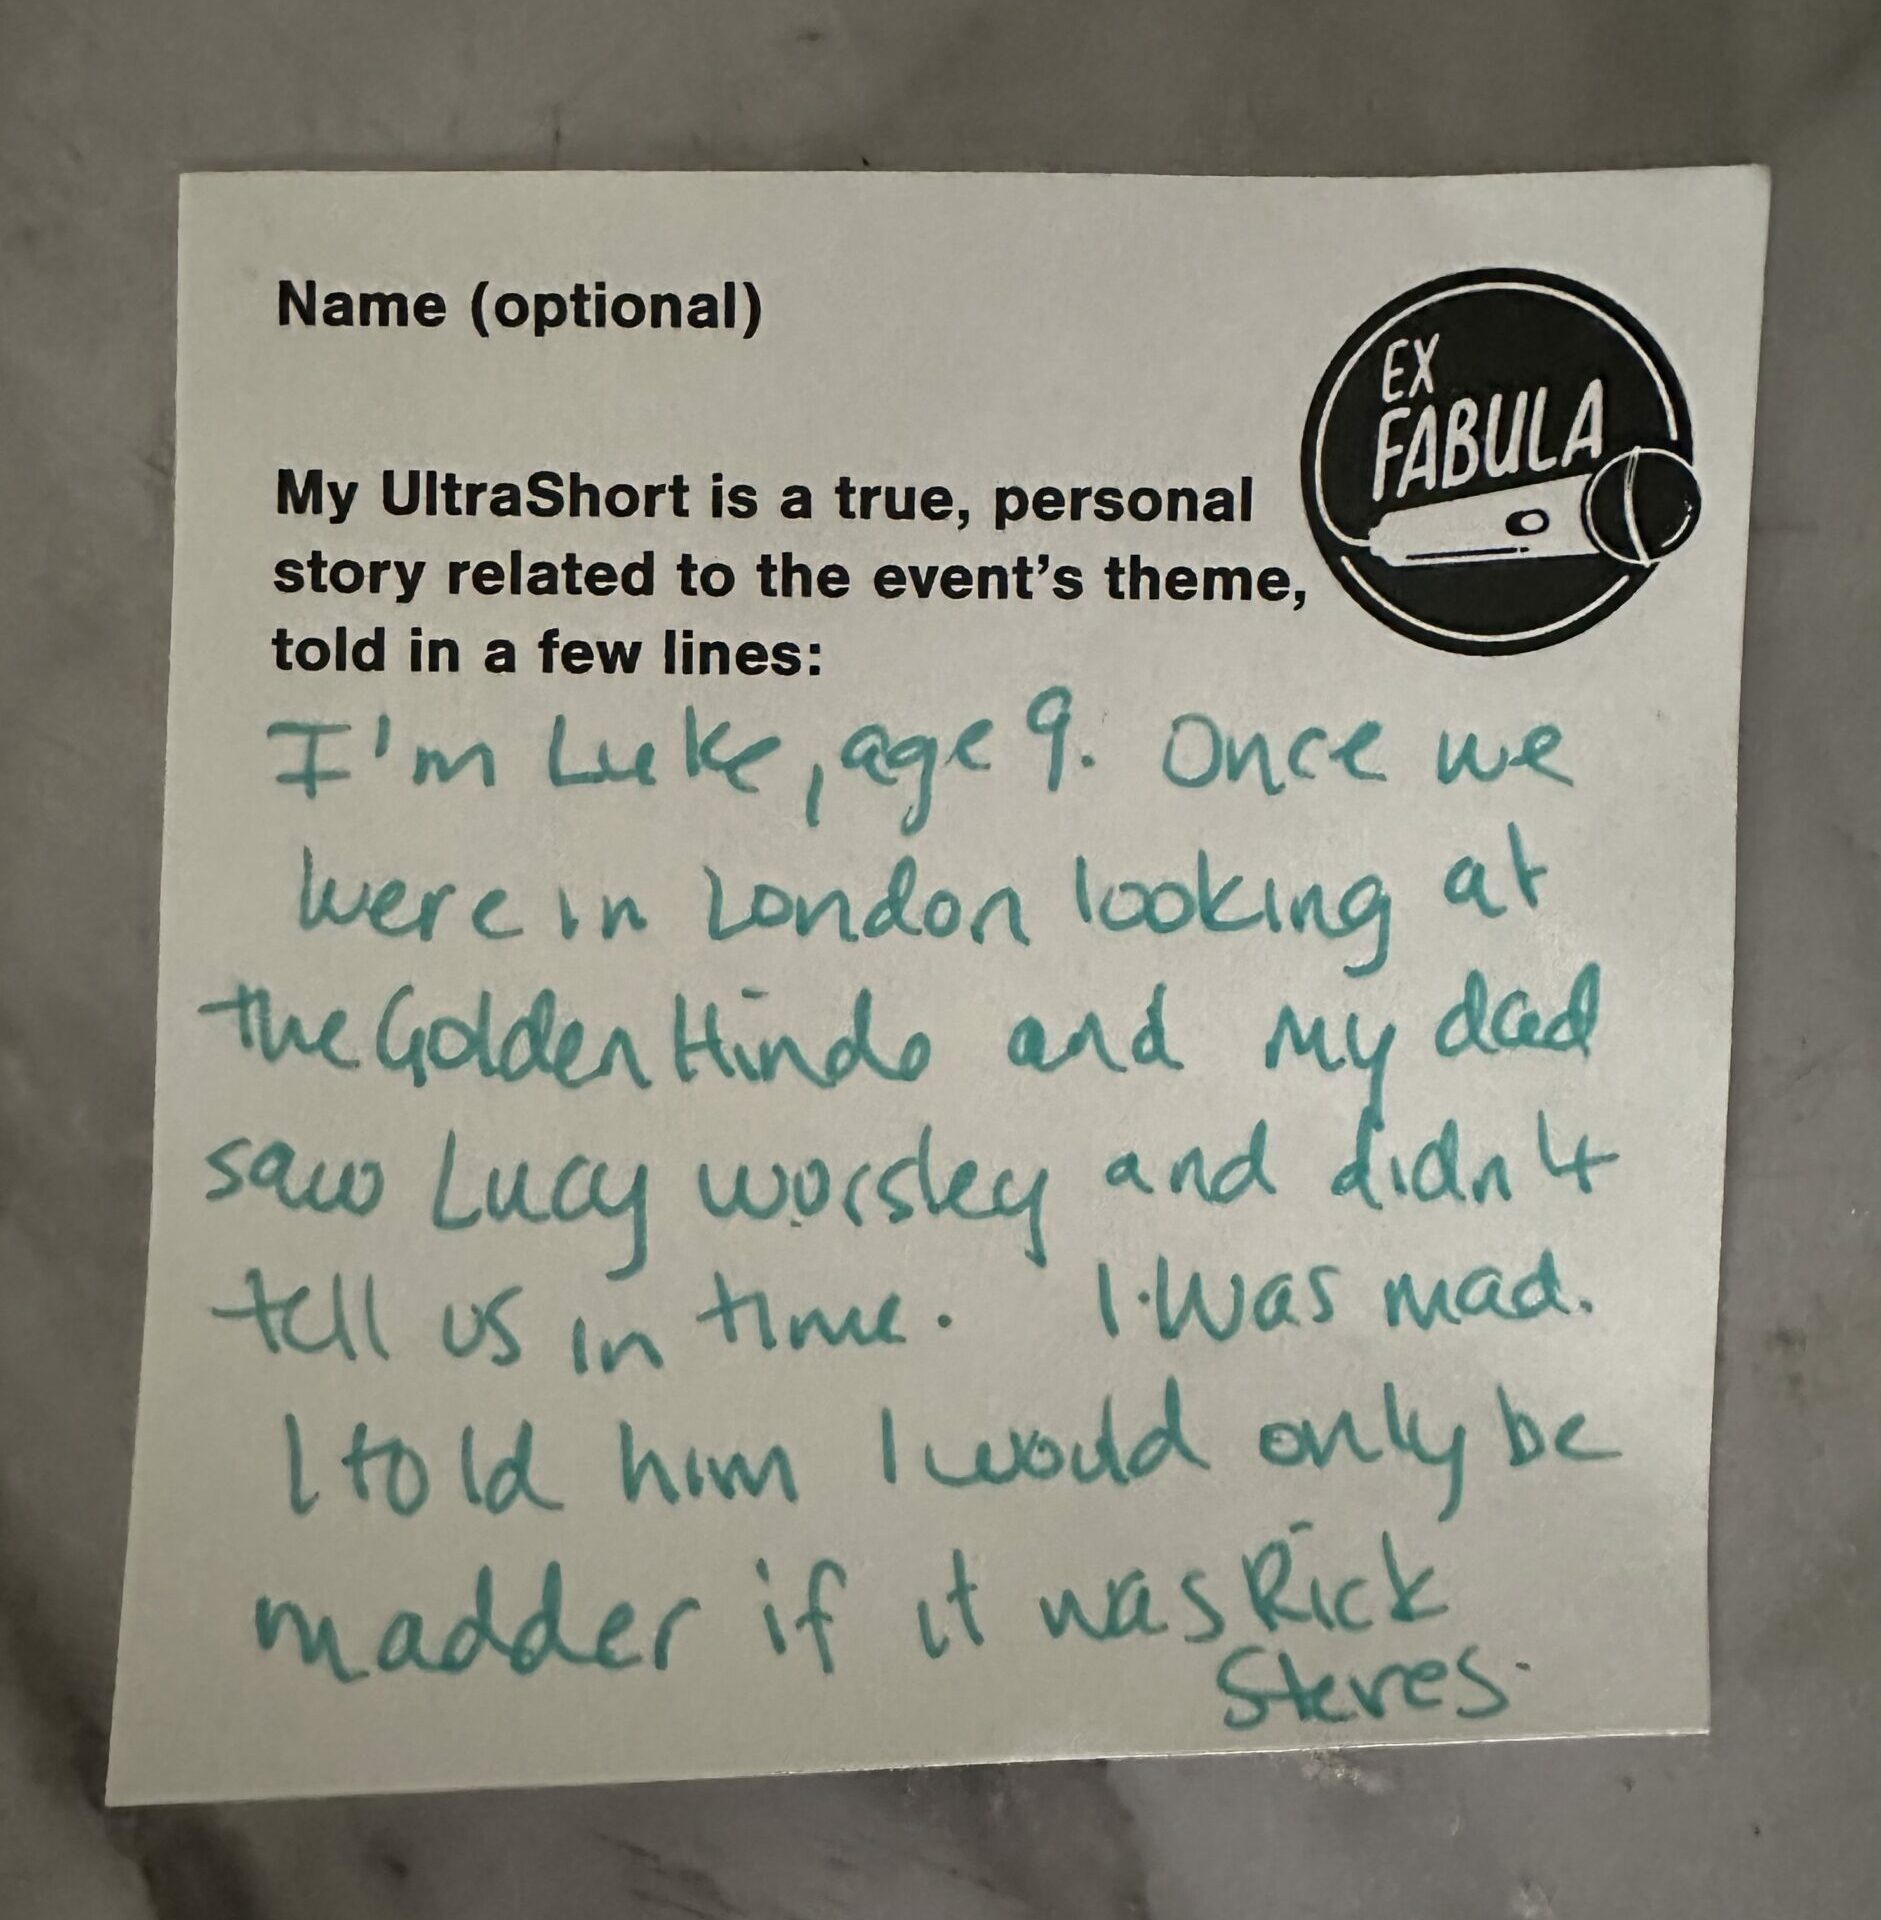 Name (optional)
EX
FABULA
My UltraShort is a true, personal
story related to the event's theme,
told in a few lines:
I'm Luke, age 9. Once we
were in London looking at
the Golden Hinde and my dad
saw Lucy Worsley and didn't
tell us in time. I was mad.
I told him I would only be
madder if it was Rick
Steves.